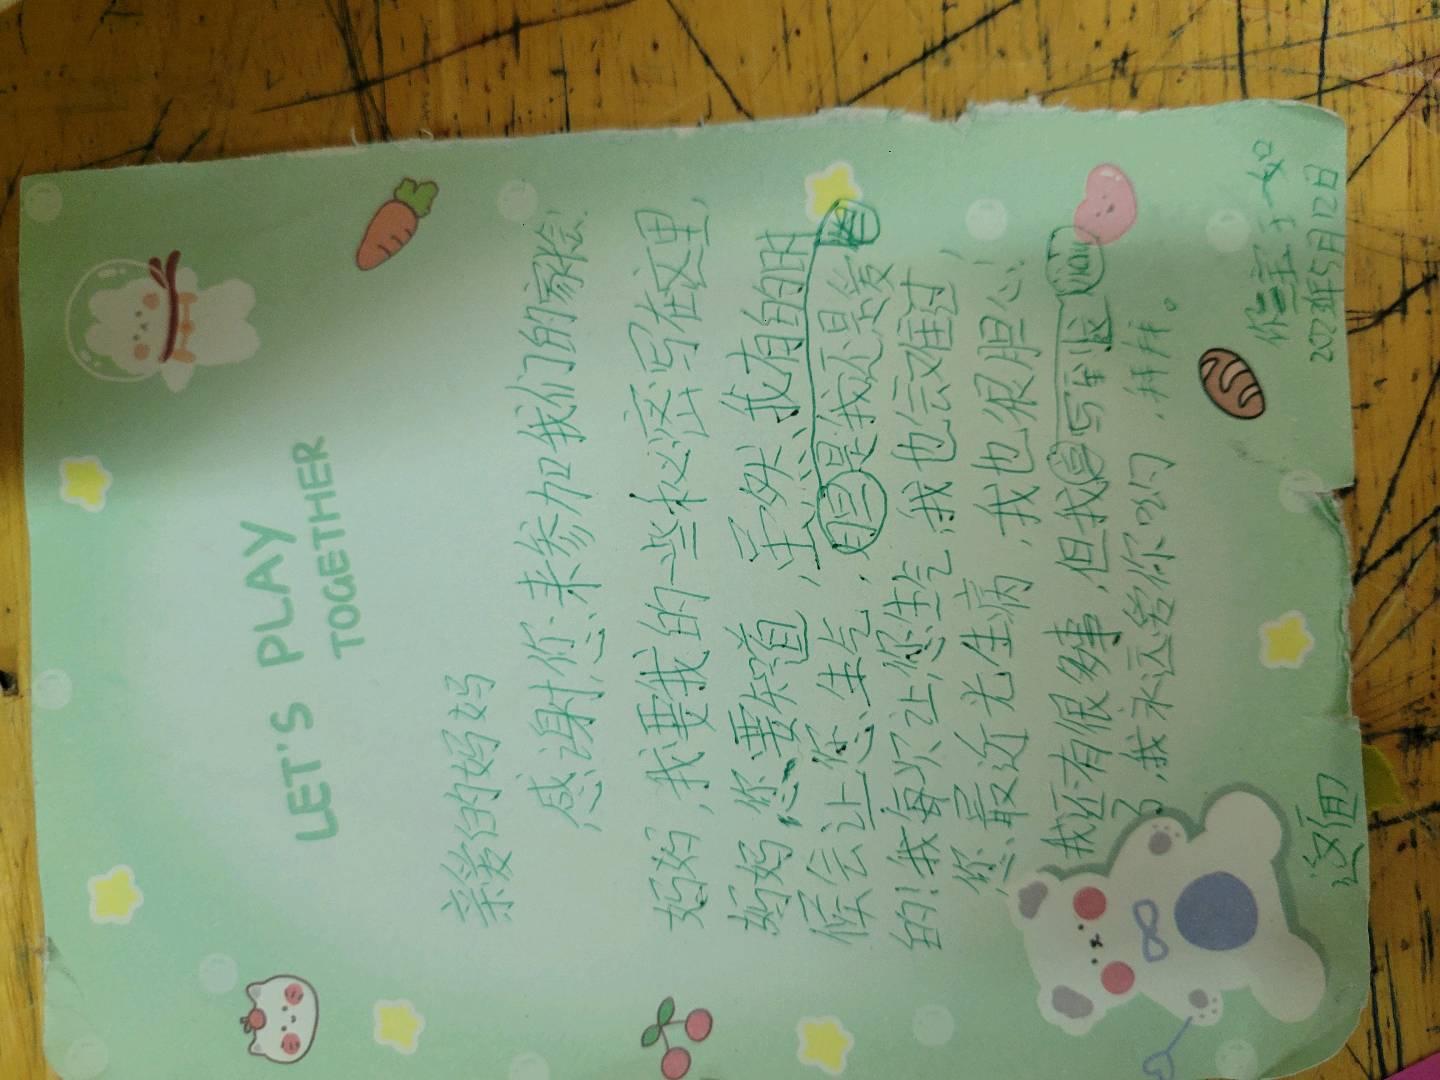 LET'S PLAY
TOGETHER
亲爱的妈妈
感谢您来参加我们的家会.
妈妈,我要我的一些秘密写在这里,
妈妈您要知道,虽然我有的时
候会让您生气,但是我还是爱
的!我每次让您生气,我也会难过,
您最近光生病,我也很担心.
我还有很多事,但我写到这
了,我永远爱你哟,拜拜。
您宝子
2023年5月12日
这面